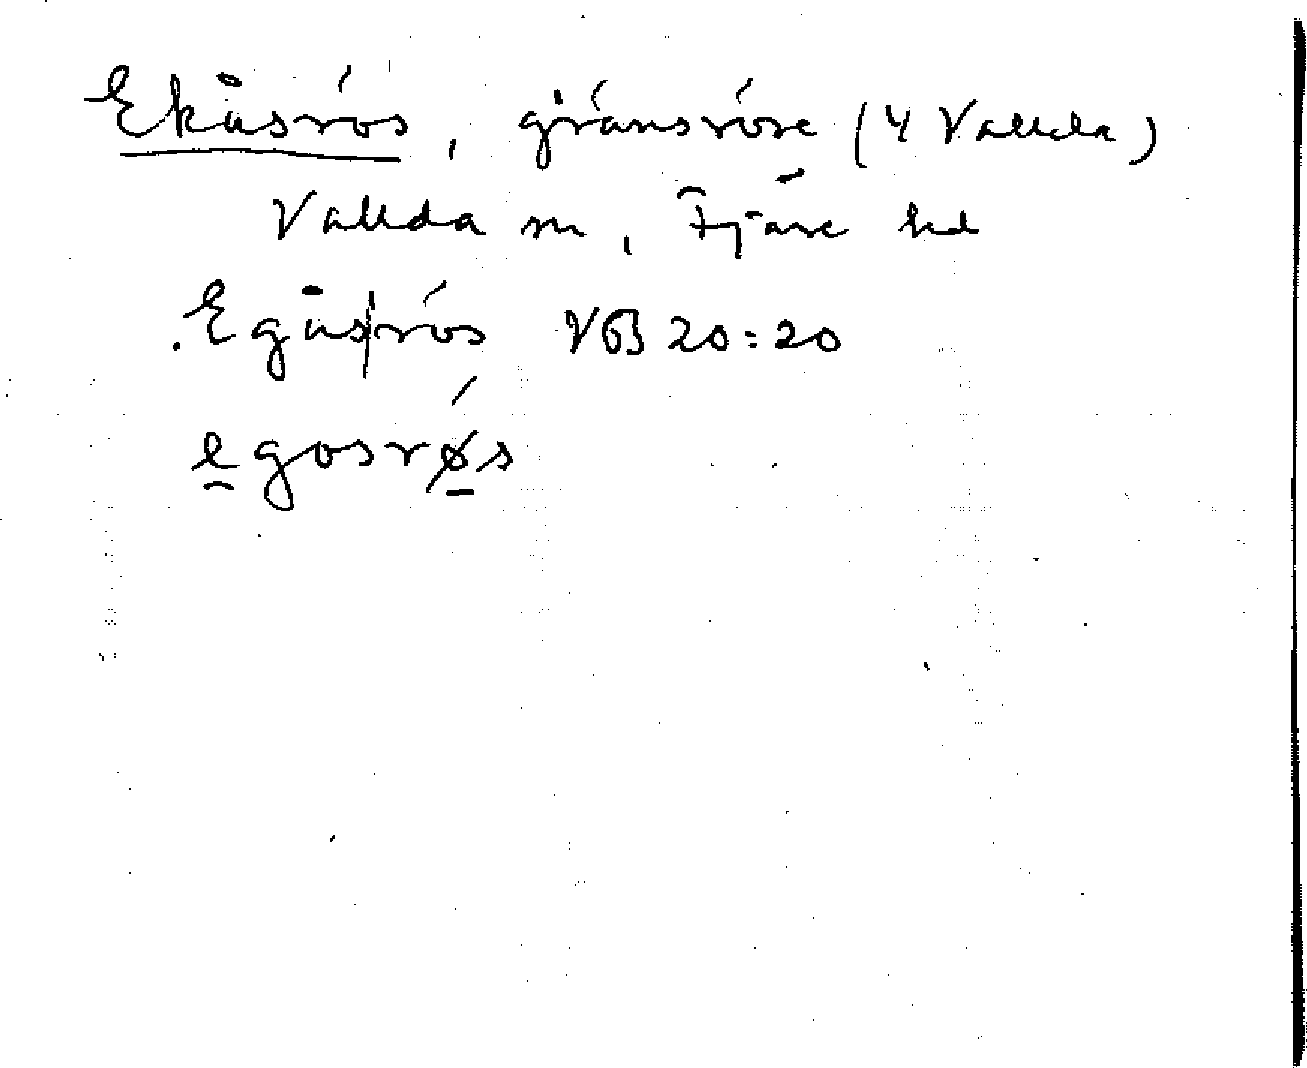 Ekåsrös, gränsröse (4 Vallda)
Vallda sn, Fjäre hd
Egås|rös VB 20:20
egosrøs